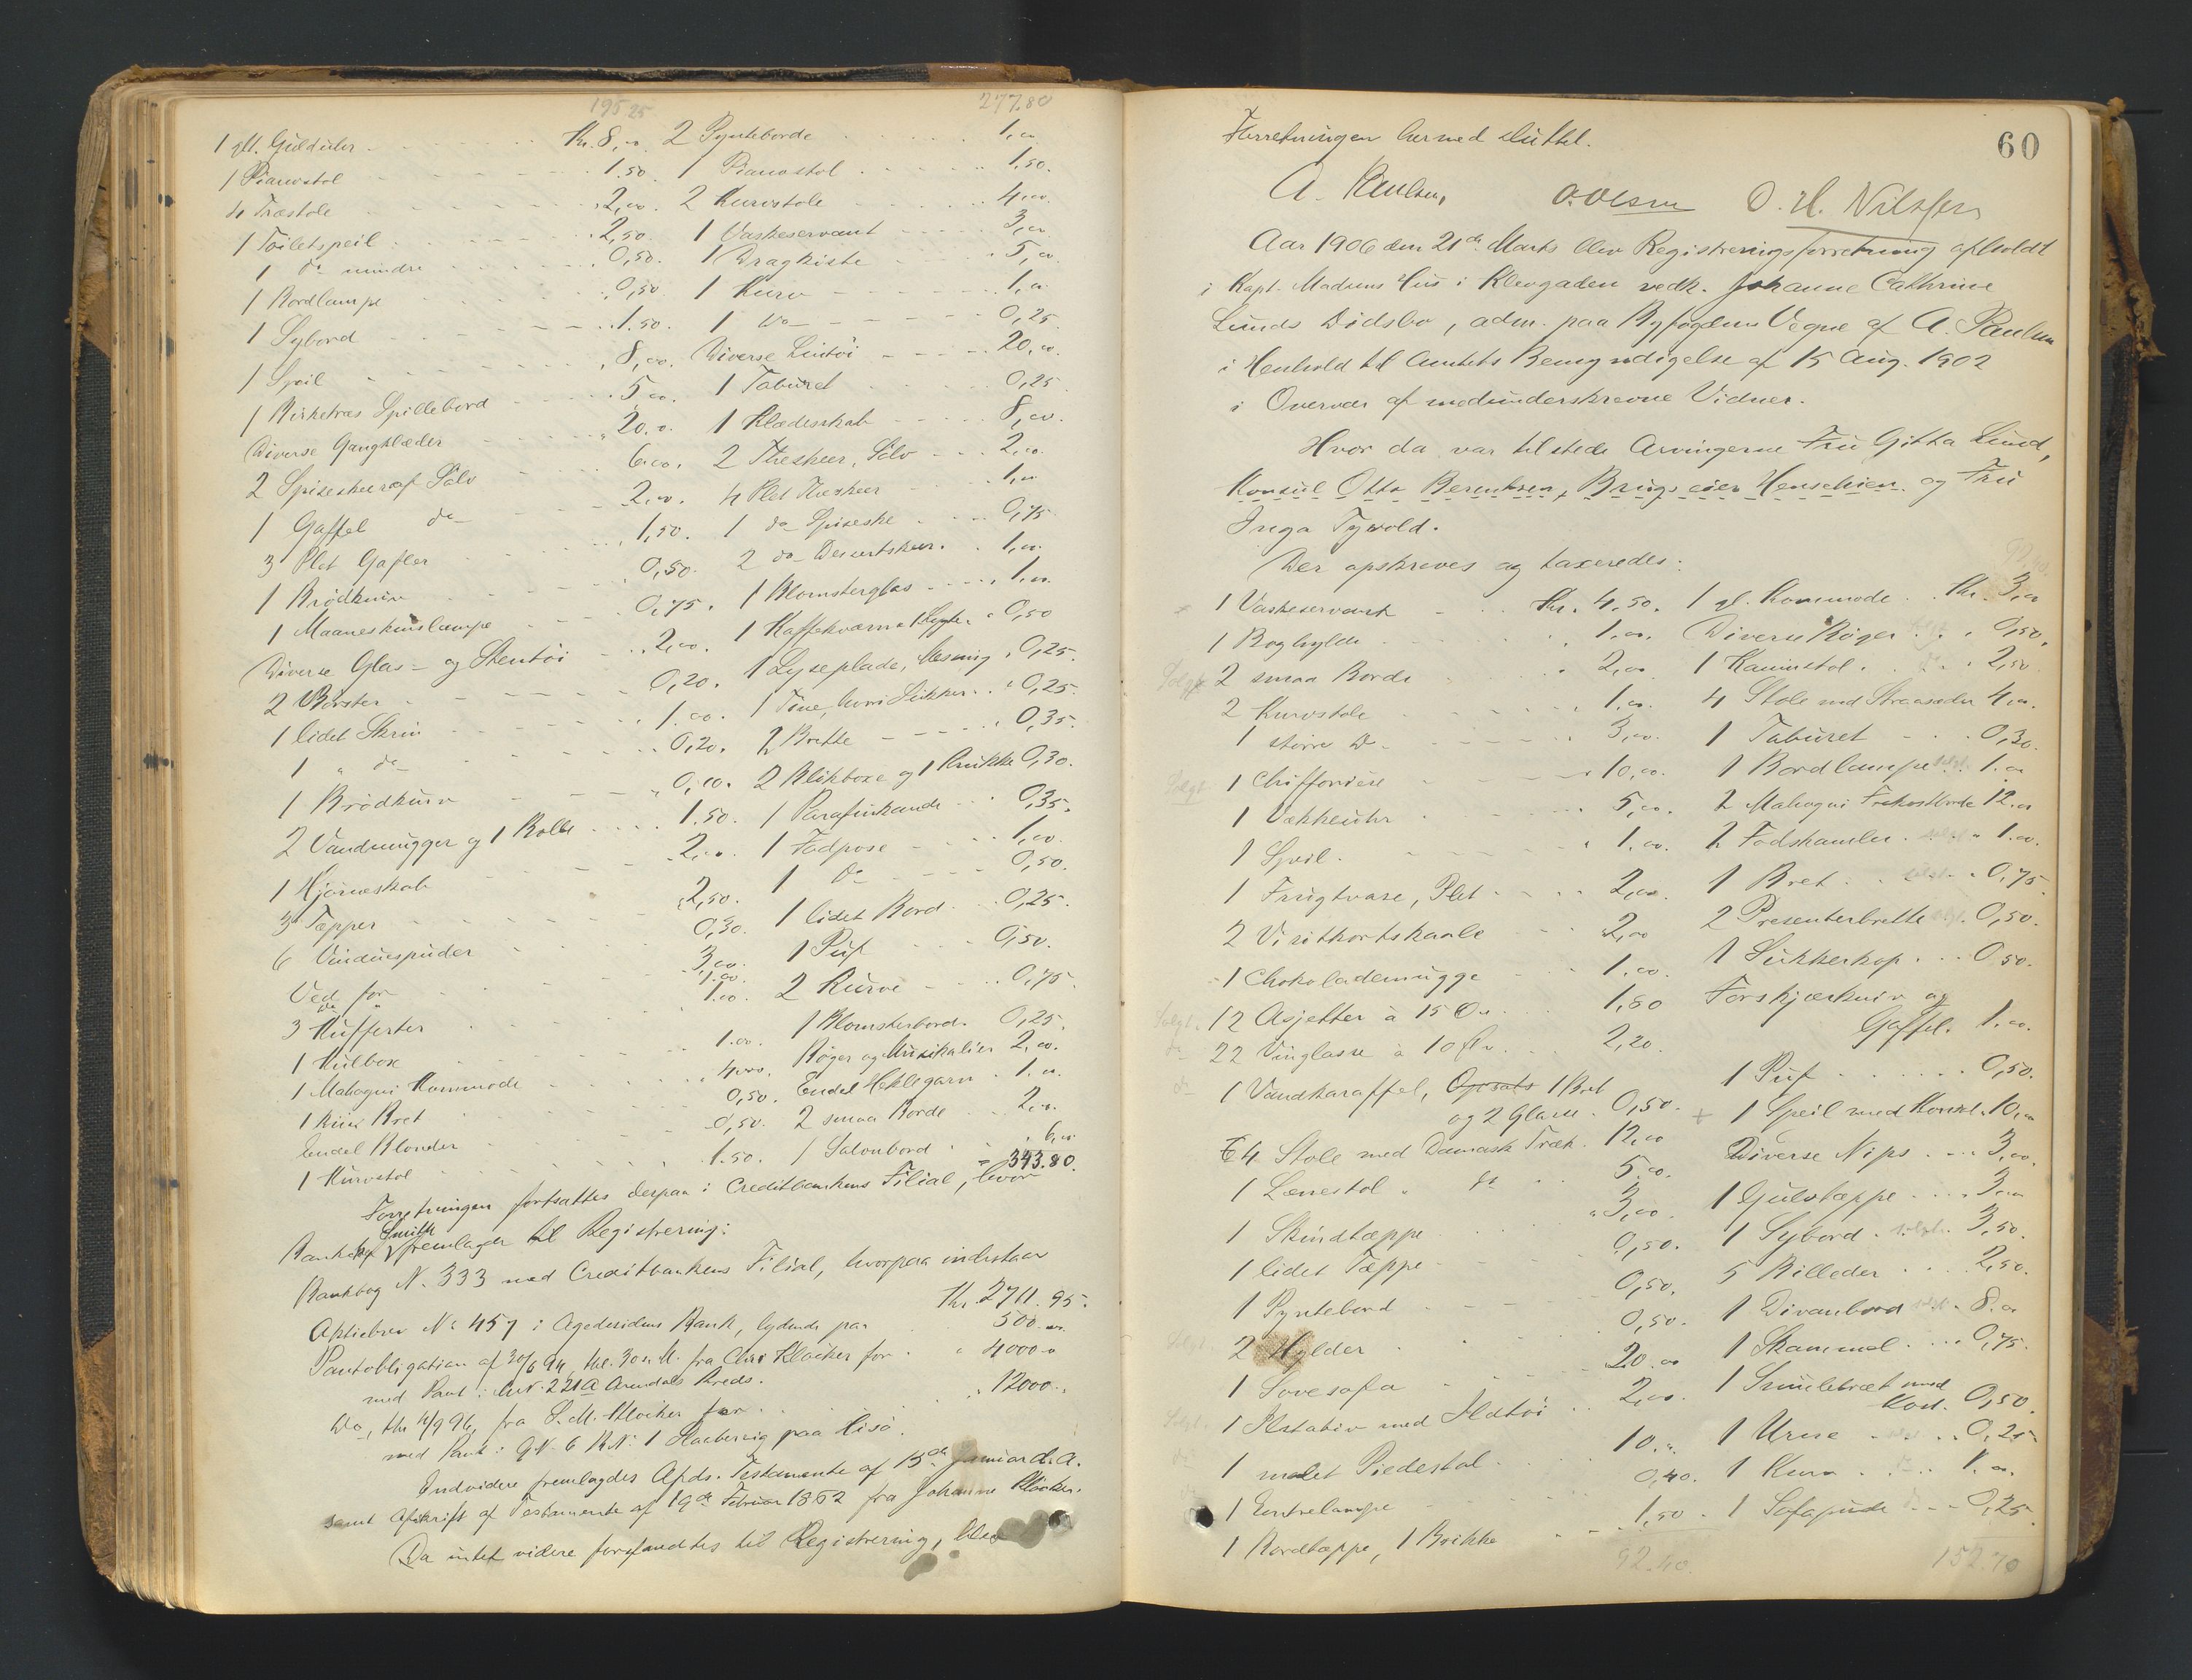 195 25
277.80
1 gl. Guldur Kr. 8,00
1 Pianostol 1.50
4 Træstole 2,00
1 Toiletspeil 2,50
1 do mindre 0,50
1 Bordlampe 0,50
1 Sybord 1.50
1 Speil 8,00
1 Birketræs Spillebord 5 00
Diverse Gangklæder 20.0
2 Spiseskeer af Sølv 6.00
1 Gaffel do 2.00
3 Plet Gafler 1,50
1 Brødkniv 0,50
1 Maaneskinslampe 0,75
Diverse Glas- og Stentøi 2,00
2 Børster 0,20
1 lidet Skrin 1.00
1 " do 0,20
1 Brødkurv 0,10
2 Vandmugger og 1 Bolle 1.50
1 Hjørneskab 2,00
3 Tæpper 2,50
6 Vinduespuder 0,30
Ved for 3,00
do " 1.00
3 Kufferter 1.00
1 Kulboxe 1.00
1 Mahogni Kommode 4,00
1 Bret 0,50
Endel Blonder 0,50
1 Kurvstol 1.50
2 Pynteborde 1,00
1 Pianostol 1.50
2 Kurvstole 4,00
1 Vaskeservant 3,00
1 Dragkiste 5,00
1 Kurv 1,00
1 do 0,25
Diverse Lintøi 20,00
1 Taburet 0,25
1 Klædesskab 8,00
2 Theskeer, Sølv 2,00
4 Plet Theskeer 1,00
1 do Spiseske 0,75
2 do Desertskeer 1,00
1 Blomsterglas 1.00
1 Kaffekværn 1 Lygte 0,50
1 Lyseplade, Messing 0,25
1 Tine, hvori Sukker 0,25
2 Brette 0,35
2 Blikboxe og 1 Krukke 0,30
1 Parafinkande 0,35
1 Fodpose 1,00
1 do 0,50
1 lidet Bord 0,25
1 Puf 0,50
2 Kurve 0,75
1 Blomsterbord 0,25
Bøger og Musikalier 2,00
Endel Heklegarn 1.00
2 smaa Borde 2,00
1 Salonbord 6,00
= 343.80
Forretningen fortsattes derpaa i Creditbankens Filial, hvor
Smith
fremlagde til Registrering:
Bankbog No 333 med Creditbankens Filial, hvorpaa indestaar
Kr. 2711.95
Aktiebrev No 457 i Agdesidens Bank, lydende paa 500.00
Pantobligation af 30/6 94, fra Chr. Kløcker for 4000.0
med Pant i No 221a Arendals Kreds.
Do, thr 4/9 96, fra S. M. Kløcker for 12000
med Pant i G.No 6 B.No 1 paa Hisø.
Endvidere fremlagdes Afds. Testamente af 15de Januar d. A.
samt Afskrift af Testamente af 19de Februar 1862 fra Johanne Kløcker.
Da intet videre forefandtes til Registrering, blev
60
Forretningen hermed sluttet.
A. Paulsen, O. Olsen O. H. Nilssen
Aar 1906 den 21de Marts blev Registreringsforretning afholdt
i Kapt. Madsens Hus i Klevgaden vedk. Johanne Cathrine
Lunds Dødsbo, adm. paa Byfogdens Vegne af A. Paulsen
i Henhold til Amtets Bemyndigelse af 15 Aug. 1902
i Overvær af medunderskrevne Vidner.
Hvor da var tilstede Arvingerne Fru Gitta Lund,
Konsul Otto Berentsen, Brugseier Henschien og Fru
Inga Tywold.
Der opskreves og taxeredes:
1 Vaskeservant Kr. 4,50
1 Boghylde 1,00
Solgt 2 smaa Borde 2,00
2 Kurvstole 1,00
1 større Do 3,00
Solgt 1 Chiffoniere 10,00
1 Vækkeuhr 5,00
1 Speil 1.00
1 Frugtvase, Plet 2,00
2 Visitkortskaale 2,00
1 Chokolademugge 1,00
Solgt 12 Asjetter à 15 Øre 1,80
do 22 Vinglasse à 10 Øre 2,20
do 1 Vandkaraffel, Opsats 1 Bret
og 2 Glasse 0,50
4 Stole med Damask Træk 12,00
1 Lænestol " do 5.00
1 Skindtæppe 3,00
1 lidet Tæppe 0,50
1 Pyntebord 0,50
Solgt 2 Hylder 0,50
1 Sovesofa 20.00
Solgt 1 Ilstativ med Ildtøi 2,00
do 1 malet Piedestal 10.
do 1 Entrelampe 0,40
1 Bordtæppe, 1 Brikke 1,50
92.40
1 gl. Kommode Kr. 3,00
Diverse Bøger solgt 0,50
1 Kaminstol do 2,50
4 Stole med Straasæder 4,00
1 Taburet 0,30
1 Bordlampe solgt 1.00
2 Mahogni Frokostborde 12.00
2 Fodskamler solgt 1.00
1 Bret solgt 0,75
2 Presenterbrette solgt 0,50
1 Sukkerkop 0.50
Forskjærkniv og
Gaffel 1.00
1 Puf 0,50
+ 1 Speil med Konsol 10,00
Diverse Nips 3,00
1 Gulvtæppe 3,00
1 Sybord solgt 3,50
5 Billeder 2,50
1 Divanbord solgt 8.00
1 Skammel 0,75
1 Smulebræt med
Kost 0,50
1 Urne solgt 0,25
1 Kurv do 1.00
1 Sofapude do 0,25
152.70